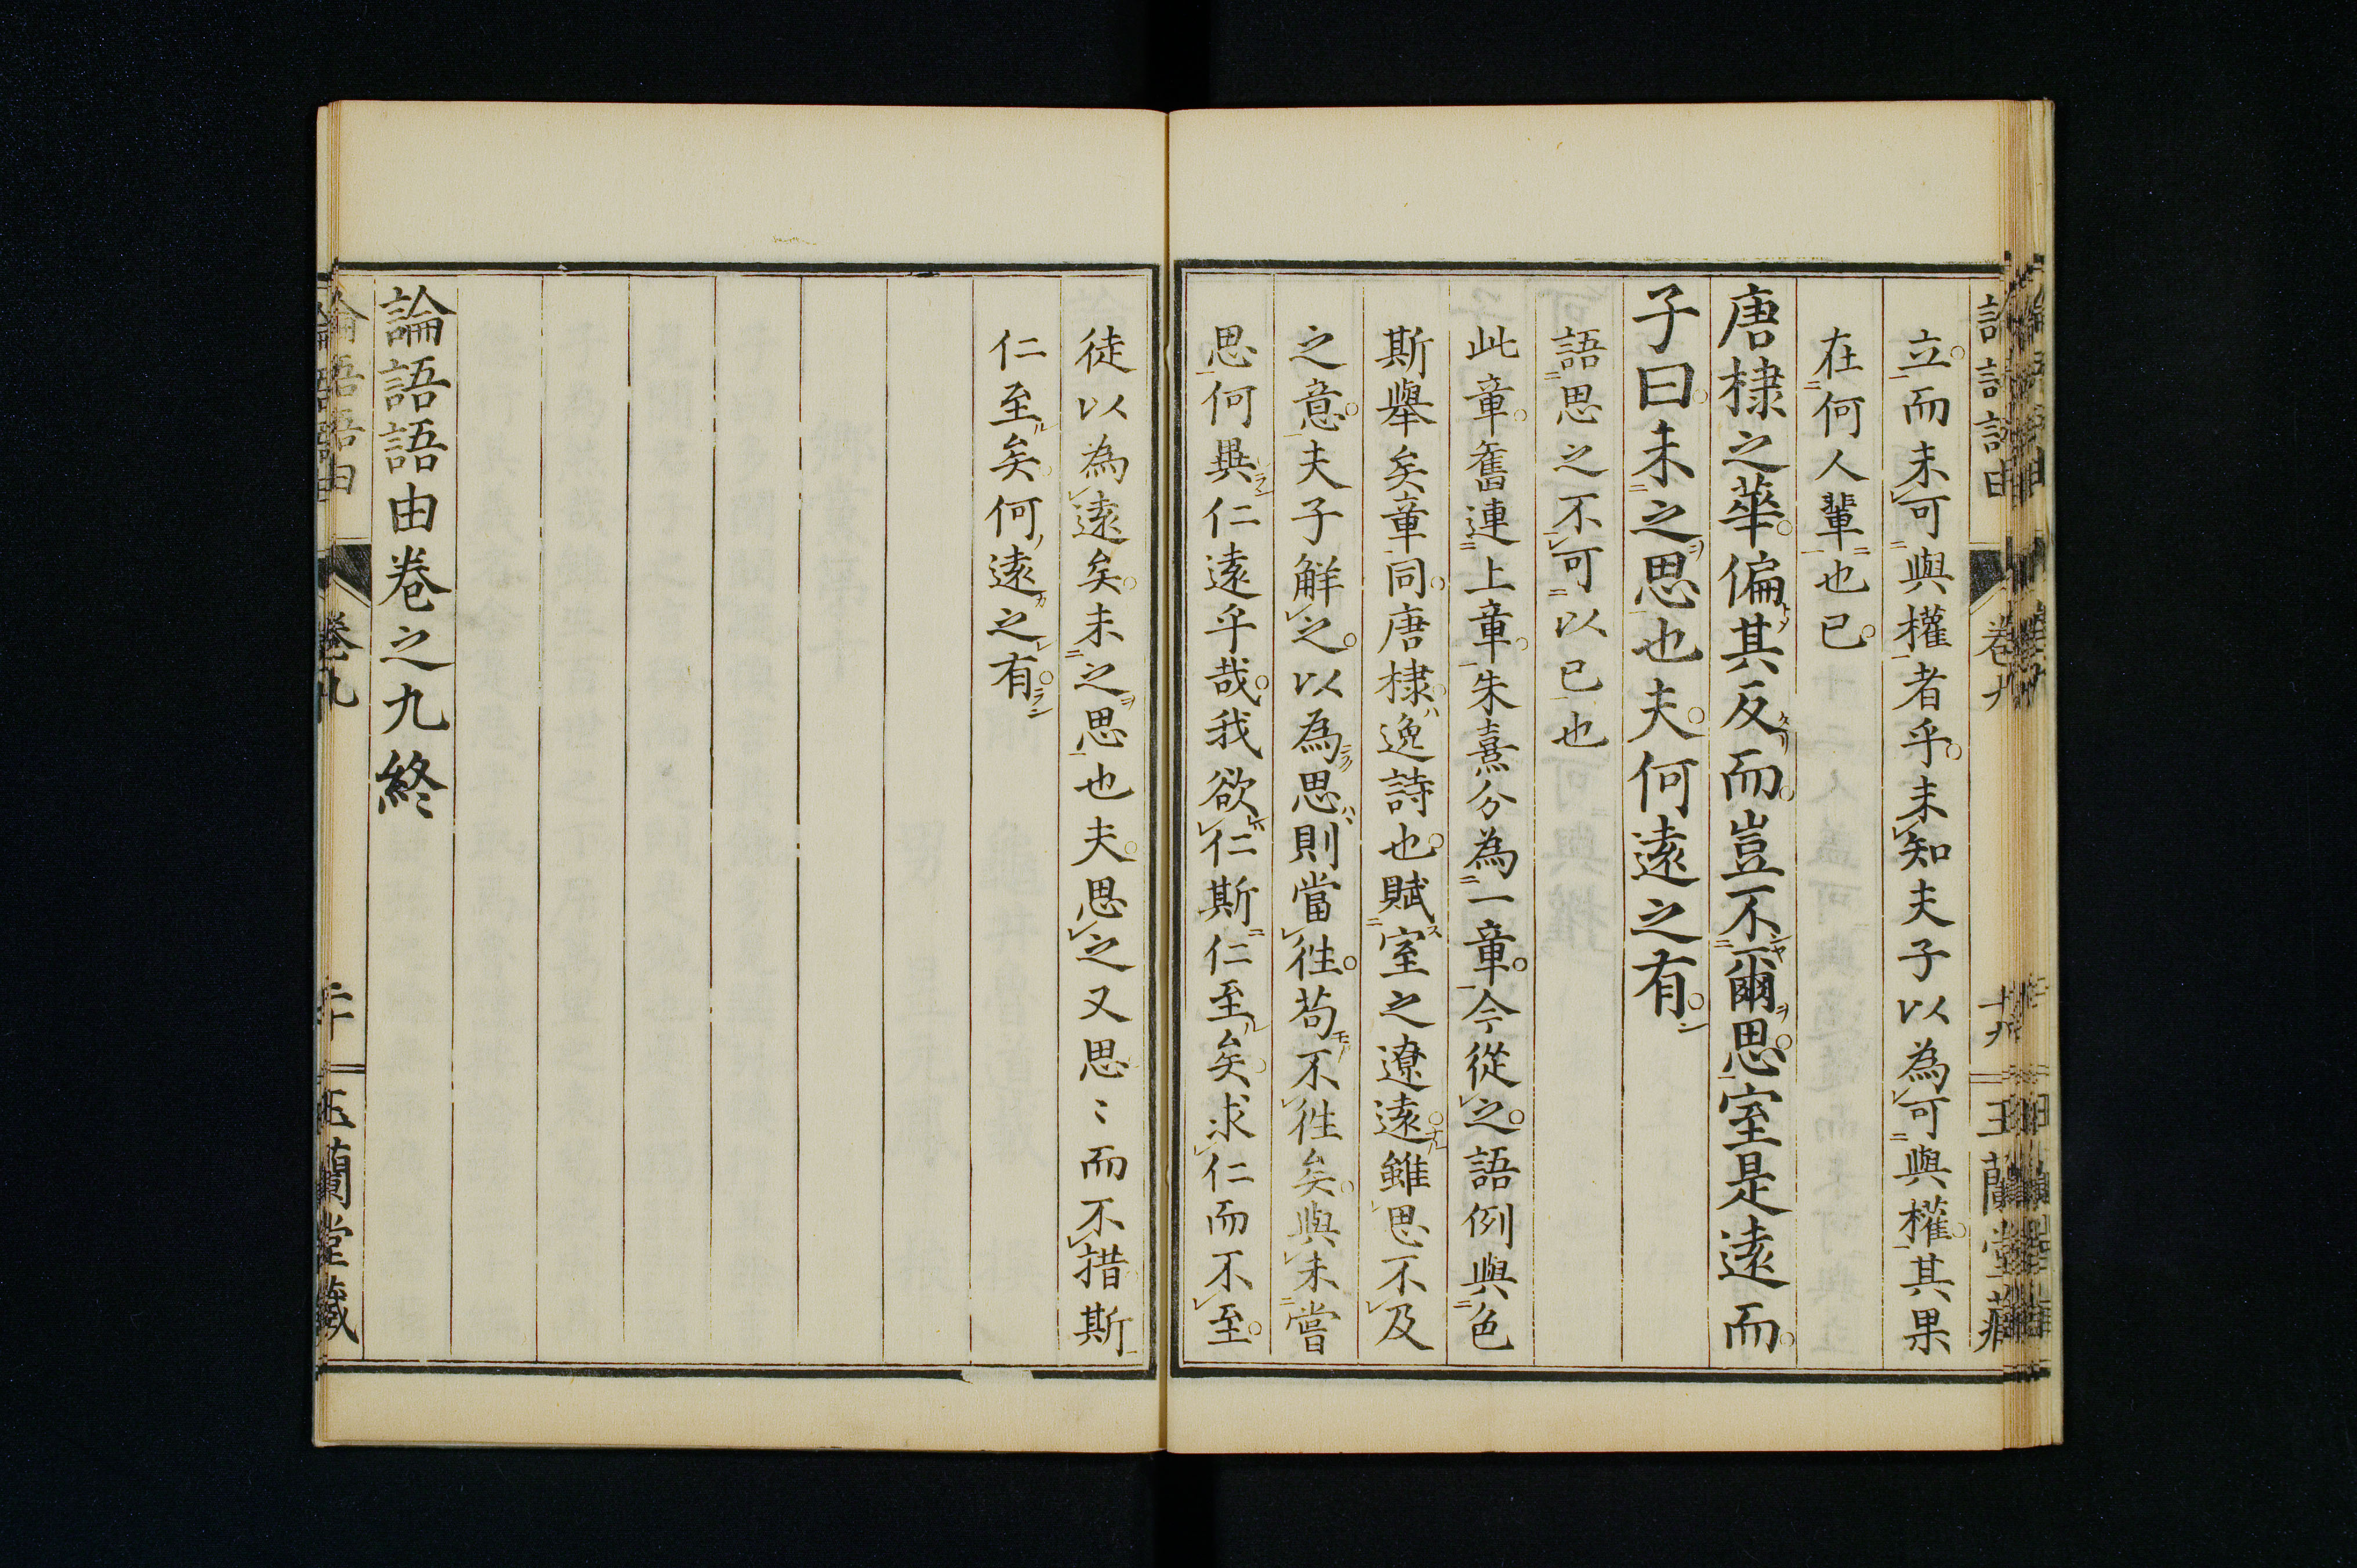 立而未可與權者乎未知夫子以為可與權其果
在何人輩也已
唐棣之華偏其反而豈不爾思室是遠而
子曰未之思也夫何遠之有
語思之不可以已也
此章舊連上章朱熹分為一章今從之語例與色
斯舉矣章同唐棣逸詩也賦室之遼遠雖思不及
之意夫子解之以為思則當往苟不往矣與未嘗
思何異仁遠乎哉我欲仁斯仁至矣求仁而不至
徒以為遠矣未之思也夫思之又思〻而不措斯
仁至矣何遠之有
論語語由卷之九終
論語語由 卷九 二十 玉蘭堂藏